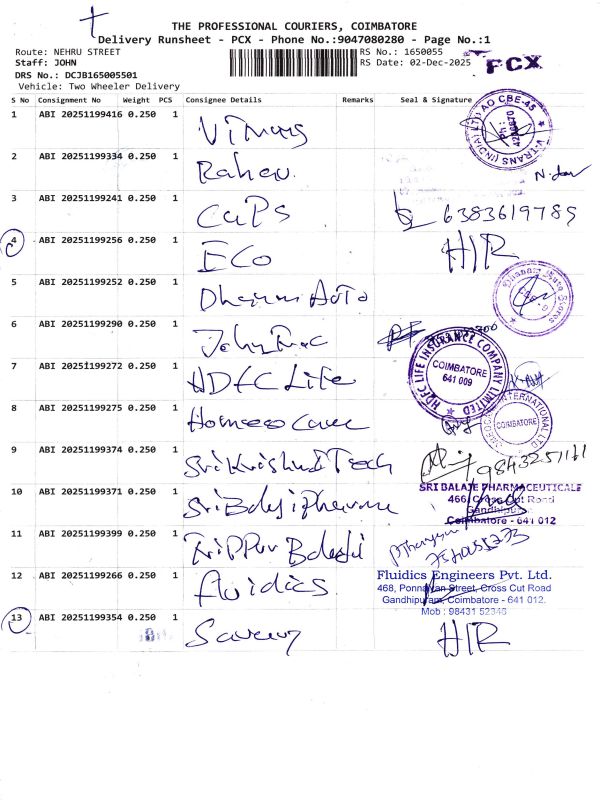 THE PROFESSIONAL COURIERS, COIMBATORE
Delivery Runsheet - PCX - Phone No.:9047080280 - Page No.:1
Route: NEHRU STREET RS No.: 1650055
Staff: JOHN RS Date: 02-Dec-2025
PCX
DRS No.: DCJB165005501
Vehicle: Two Wheeler Delivery
S No Consignment No Weight PCS Consignee Details Remarks Seal & Signature
1 ABI 20251199416 0.250 1
AO CBE-45 V-TRANS (INDIA) LTD
2 ABI 20251199334 0.250 1
3 ABI 20251199241 0.250 1 CaPs 6383619789
4 ABI 20251199256 0.250 1 ECo H/R
5 ABI 20251199252 0.250 1 Dharani Auto
6 ABI 20251199290 0.250 1
7 ABI 20251199272 0.250 1 HDFC Life
HDFC LIFE INSURANCE COMPANY LIMITED
COIMBATORE
641 009
8 ABI 20251199275 0.250 1 Homeeo Care
COIMBATORE
9 ABI 20251199374 0.250 1 Sri Krishna Tech 9843251161
10 ABI 20251199371 0.250 1 Sri Balaji Pharma
SRI BALAJE PHARMACEUTICALE
466, Cross Cut Road
Gandhipuram
Coimbatore - 641 012
11 ABI 20251199399 0.250 1 Trippur Balaji
12 ABI 20251199266 0.250 1 fluidics
Fluidics Engineers Pvt. Ltd.
468, Ponnaiyan Street, Cross Cut Road
Gandhipuram, Coimbatore - 641 012.
Mob : 98431 52346
13 ABI 20251199354 0.250 1 H/R